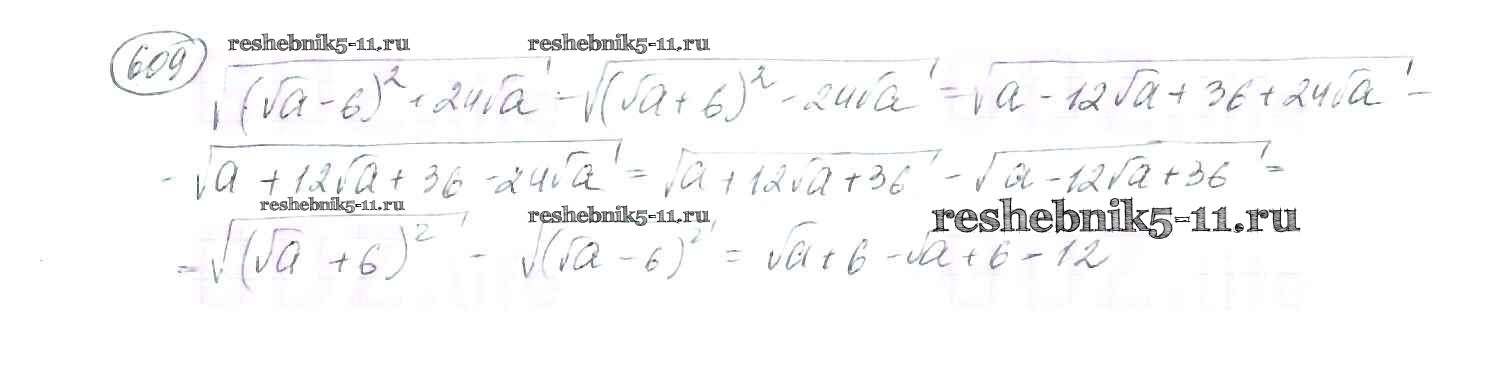 reshebnik5-11.ru reshebnik5-11.ru
609 √((√a - 6)² + 24√a) - √((√a + 6)² - 24√a) = √(a - 12√a + 36 + 24√a) -
- √(a + 12√a + 36 - 24√a) = √(a + 12√a + 36) - √(a - 12√a + 36) =
reshebnik5-11.ru reshebnik5-11.ru reshebnik5-11.ru
= √((√a + 6)²) - √((√a - 6)²) = √a + 6 - √a + 6 - 12